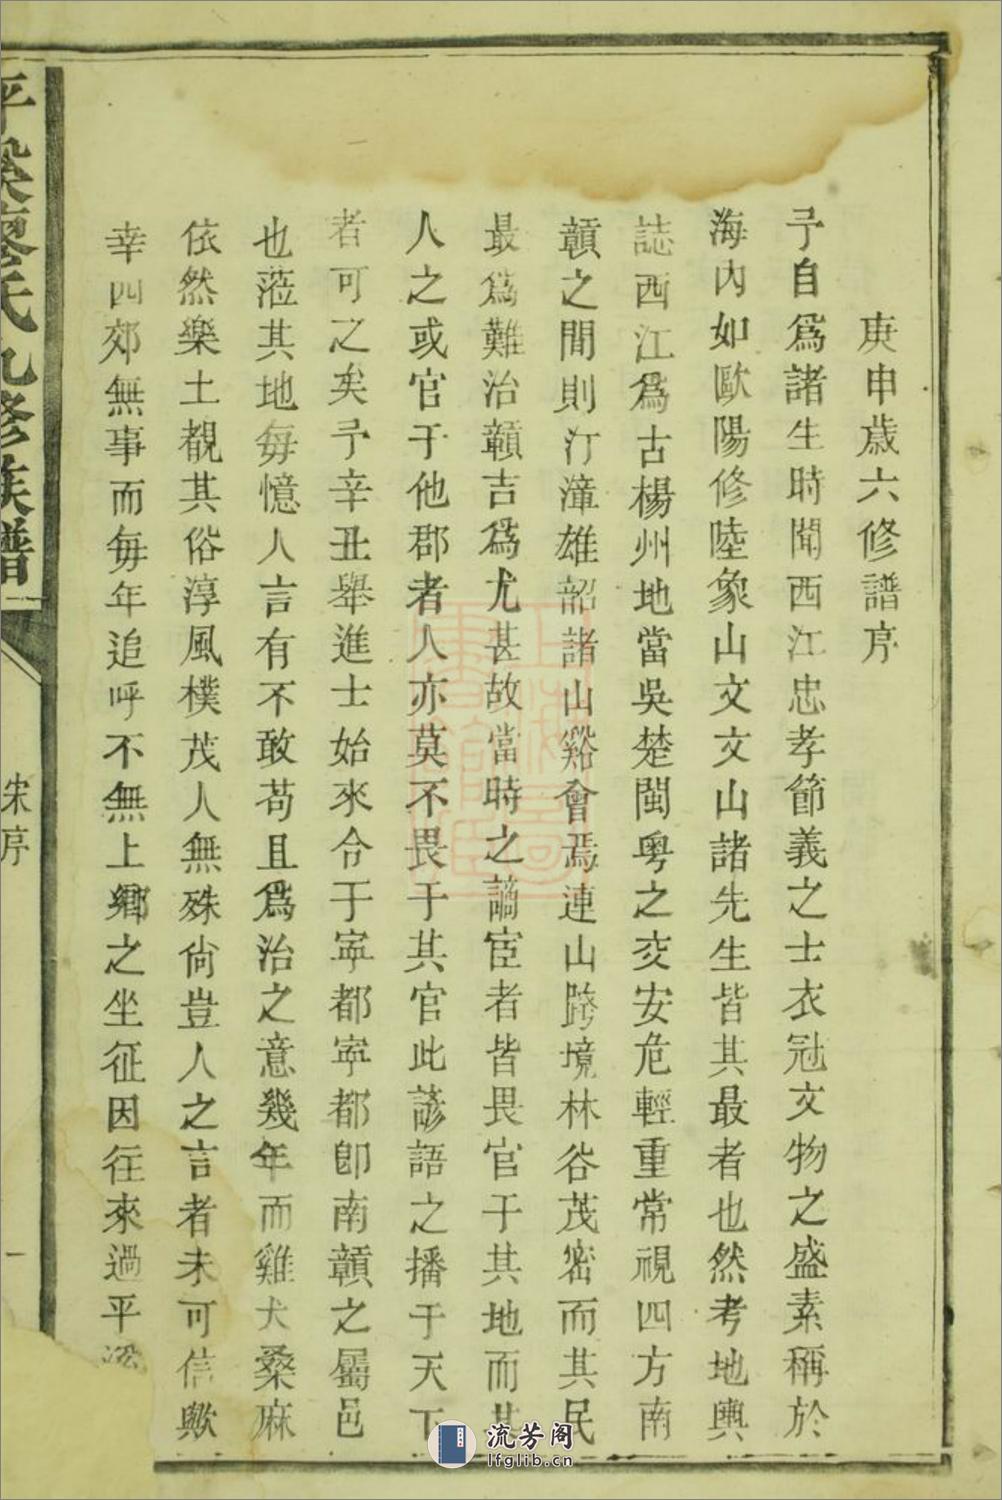 庚申歲六修譜序
予自爲諸生時聞西江忠孝節義之士衣冠文物之盛素稱於
海內如歐陽修陸象山文文山諸先生皆其最者也然考地輿
誌西江爲古楊州地當吳楚閩粵之交安危輕重常視四方南
贛之間則汀漳雄韶諸山谿會焉連山跨境林谷茂密而其民
最爲難治贛吉爲尤甚故當時之謫宦者皆畏官于其地而其
人之或官于他郡者人亦莫不畏于其官此諺語之播于天下
者可之矣予辛丑舉進士始來令于寧都寧都卽南贛之屬邑
也蒞其地每憶人言有不敢苟且爲治之意幾年而雞犬桑麻
依然樂土覩其俗淳風樸茂人無殊尙豈人之言者未可信歟
幸四郊無事而每年追呼不無上鄉之坐征因往來過平梁
平梁廖氏九修族譜
宋序
一
流芳阁
lfglib.cn